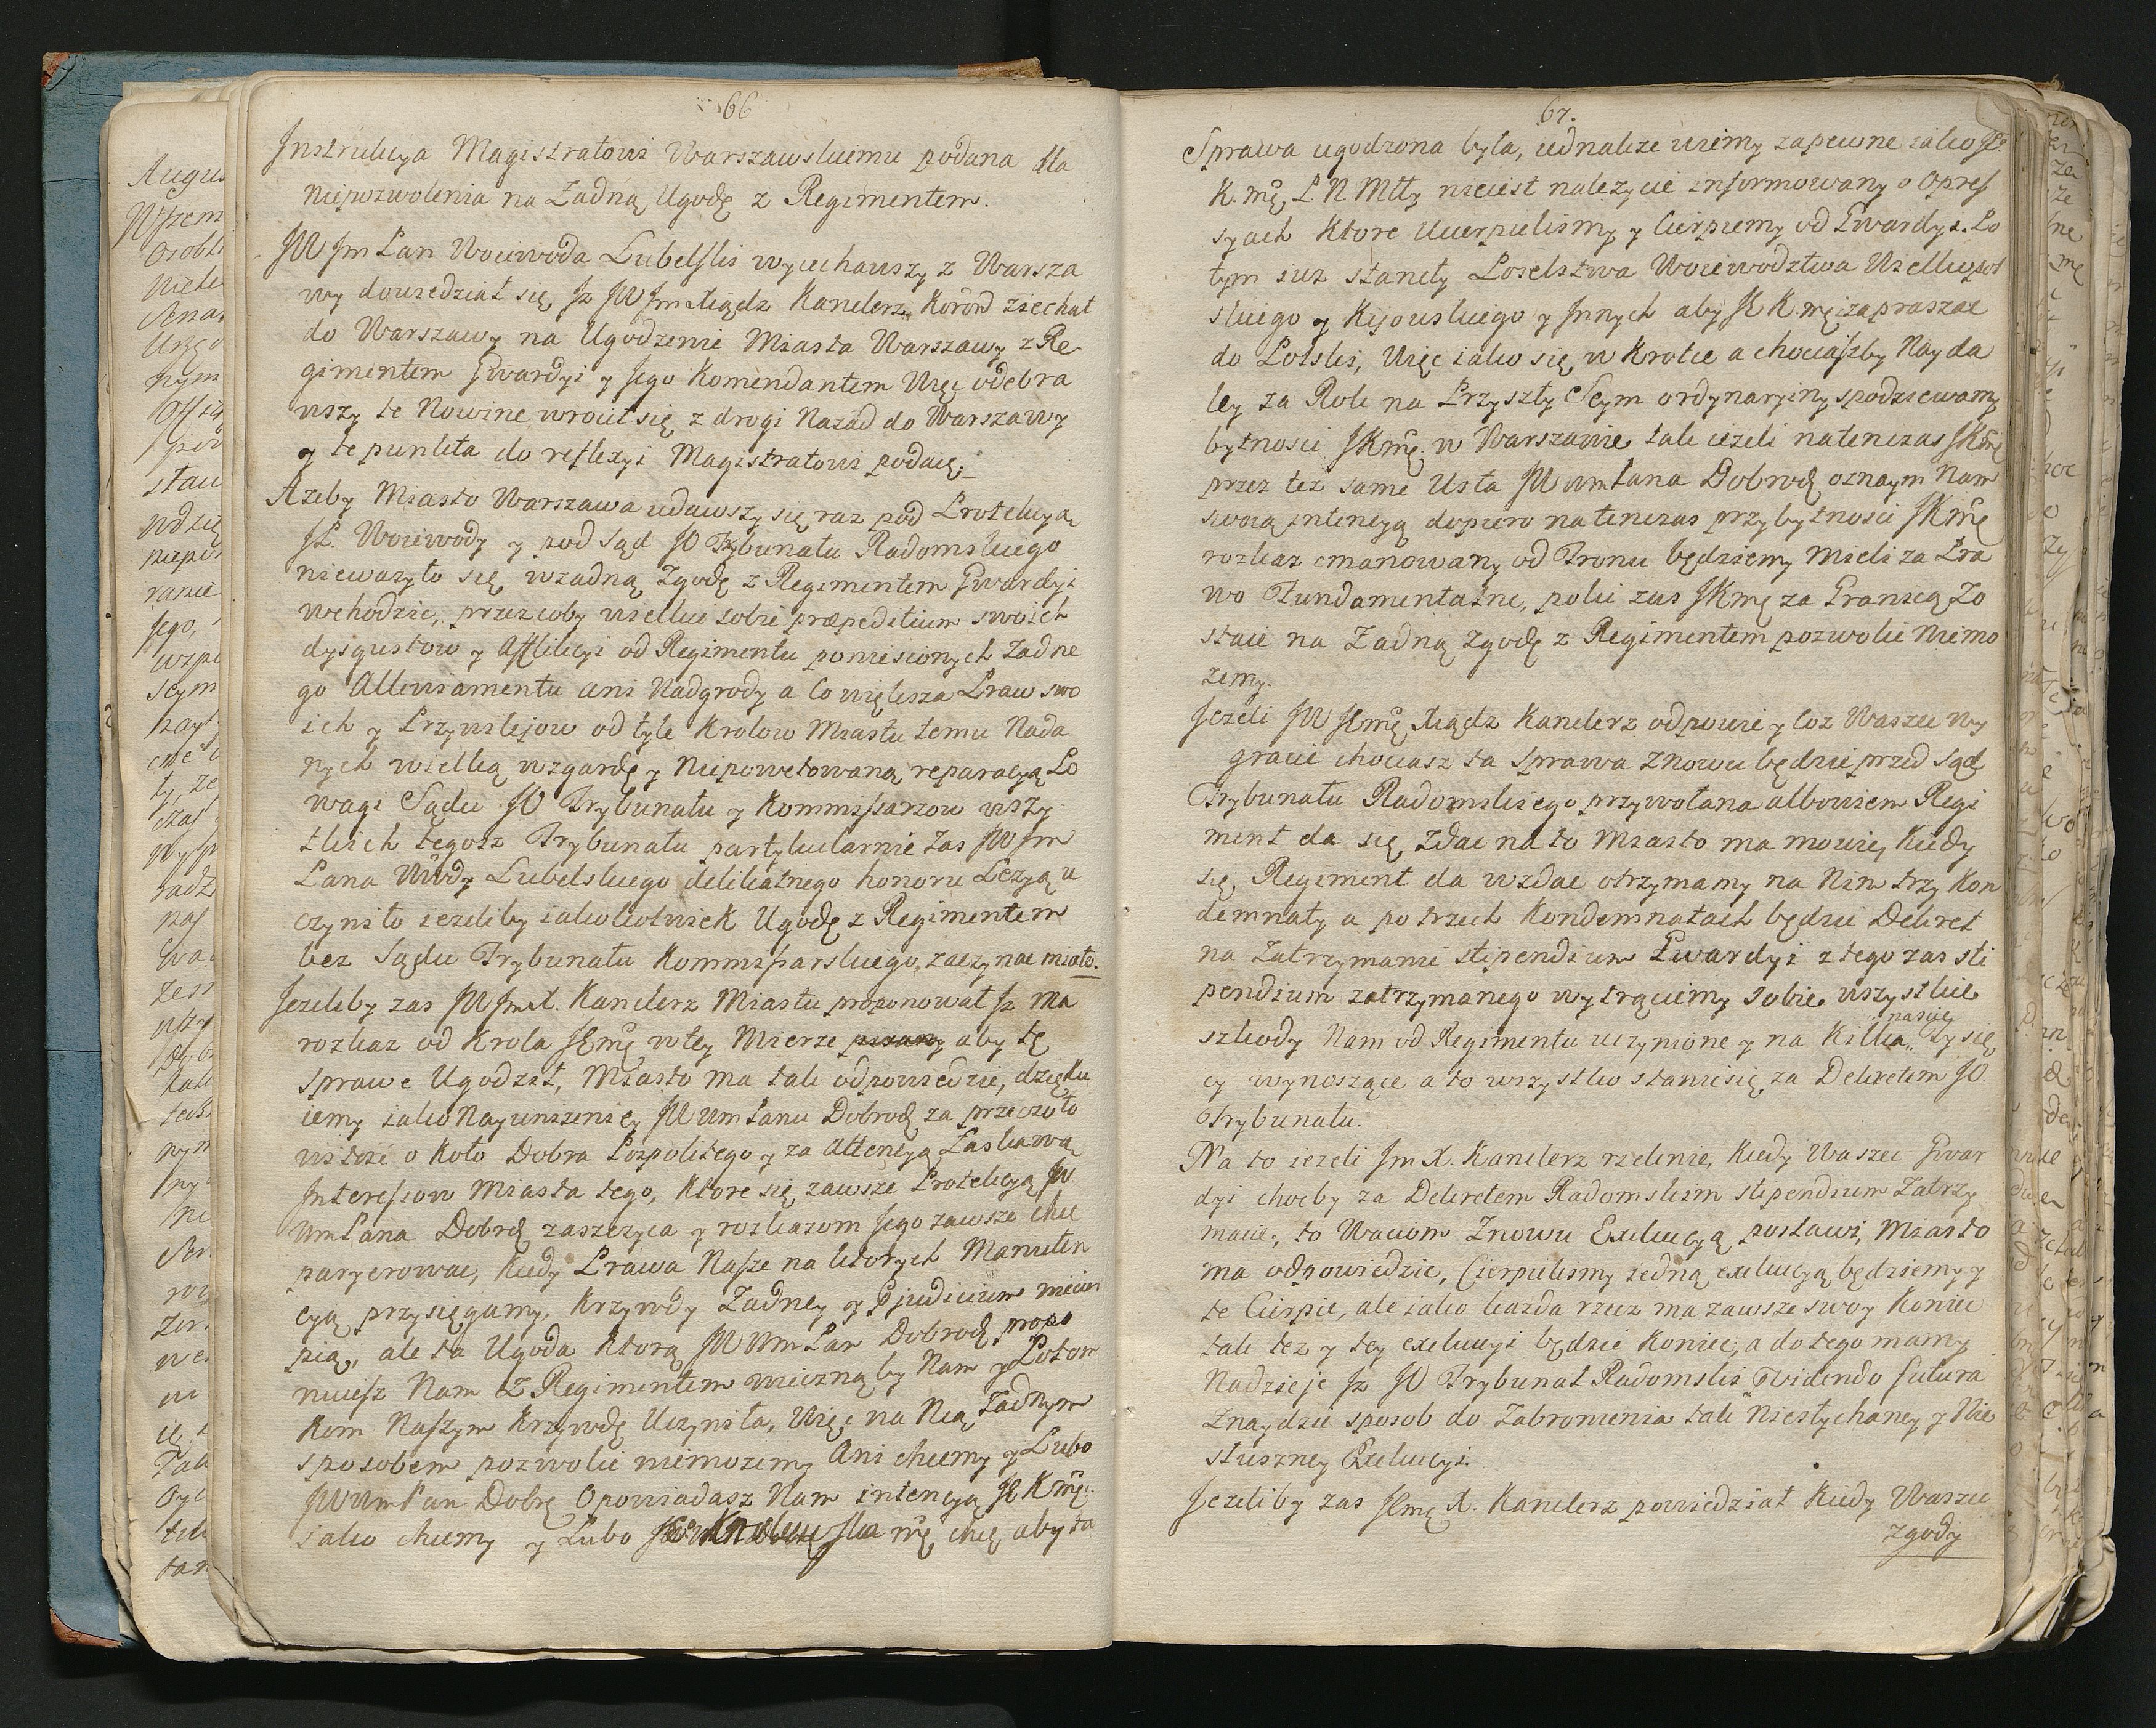 66
Instrukcya Magistratowi Warszawskiemu podana dla
Niepozwolenia na Zadną Ugodę z Regimentem.
JW Jm Pan Woiewoda Lubelski wyiechawszy z Warsza
wy dowiedział się Jz JW Jm Xiądz Kanclerz Koron ziechał
do Warszawy na Ugodzenie Miasta Warszawy z Re-
gimentem Gwardyi y Jego Komendantem Więc odebra
wszy te Nowine wrocił się z drogi Nazad do Warszawy
y te punkta do reflexyi Magistratowi podaię;
Azeby Miasto Warszawa udawszy się raz pod Protekcyą
JP. Woiewody y pod Sąd JO Trybunału Radomskiego
nieważyło się w zadną Zgodę z Regimentem Gwardyi
wchodzic, przez coby wielkie sobie præpeditium swoich
dysgustow y Afflikcyi od Regimentu poniesionych Zadne
go Allewiamentu ani Nadgrody a Co większa Praw swo
ich y Przywilejow od tyle Krolow Miastu temu Nada
nych wielką wzgardę y Niepowetowaną reparacyą Po
wagi Sądu JO Trybunału y Kommissarzow wszy-
tkich tegosz Trybunału partykularnie Zas JW Jm
Pana Wdy Lubelskiego delikatnego honoru Lezyą u
czyniło ieżeliby iakokolwiek Ugodę z Regimentem
bez Sądu Trybunału Kommissarskiego, zaczynac miało.
Jezeliby zas JW Jm X. Kanclerz Miastu proponował Jz ma
rozkaz od Krola Jmę w tey Mierze pisany aby tę
sprawe Ugodził, Miasto ma tak odpowiedzie, dzięku
iemy iako Nayunizeniey JW Wm Panu Dobrod za przezo to
wistosc o koło Dobra Pospolitego y za Attencyą Laskawą
Interessow Miasta tego, Ktore się zawsze Protekcyą JW.
Wm Pana Dobrd zaszczyca y rozkazom Jego zawsze chce
paryerowac, kiedy Prawa Nasze na ktorych Manuten
cyą przysięgamy, Krzywdy Zadney y Pjudicium niecier
pią, ale ta Ugoda Ktorą JW Wm Pan Dobrod propo
nuiesz Nam z Regimentem wieczną by Nam y Potom
kom Naszym Krzywdę Uczyniła, Więc na Nią Zadnym
sposobem pozwolic niemozemy Ani chcemy y Lubo
JW Wm Pan Dobrę Opowiadasz Nam intencyą JK Kmę
iako chcemy y Lubo mę chcę aby ta
67.
Sprawa ugodzona była, iednakze wiemy zapewne iako JK.
K. mę P. N. Mtty nieiest nalezycie informowany o Opres
syach Ktore Ucierpielismy y Cierpiemy od Gwardyi. Po
tym iuz stanęły Poselstwa Woiewodztwa Wielkopol
skiego y Kijowskiego y Innych aby JK K. mę zapraszac
do Polski, Więc iako się w Krotce a chociaszby Nayda
ley za Rok na Przyszły Seym ordynaryiny spodziewamy
bytnosci JKmę. w Warszawie tak iezeli natenczas JKmę
przez tez same Usta JW Wm Pana Dobrod oznaym Nam
swoią intencyą dopiero natenczas przy bytnosci JKmę
rozkaz emanowany od Tronu będziemy mieli za Pra
wo Fundamentalne, poki zas JKmę za Granicą Zo
staie na Zadną zgodę z Regimentem pozwolic Niemo
żemy.
Jezeli JW Jmę Xiądz Kanclerz odpowie y coz Waszec wy
gracie chociasz ta Sprawa znowu będzie przed Sąd
Trybunału Radomskiego przywołana albowiem Regi
ment da się Zdac na to Miasto ma mowic, kiedy
się Regiment da wzdac otrzymamy na Nim trzy Kon
demnaty a po trzech Kondemnatach będzie Dekret
na Zatrzymanie stipendium Gwardyi z tego zas sti
pendium zatrzymanego wytrąciemy sobie wszystkie
szkody Nam od Regimentu uczynione y na Kilka nascie Tysię
cy wynoszące a to wszystko stanie się za Dekretem JO.
Trybunału.
Na to iezeli Jm X. Kanclerz rzeknie, kiedy Waszec Gwar
dyi chocby za Dekretem Radomskim stipendium Zatrzy
macie, to Wacom Znowu Exekucyą postawi, Miasto
ma odpowiedzie, Cierpielismy iedną exekucyą będziemy y
te Cierpie, ale iako kazda rzecz ma zawsze swoy Koniec
tak tez y tey exekucyi będzie Koniec, a do tego mamy
Nadzieje Jz JO Trybunał Radomski Videndo futura
Znaydzie sposob do Zabronienia tak Niesłychaney y Nie
słuszney Exekucyi.
Jezeliby zas Jmę X. Kanclerz powiedział Kiedy Waszec
zgody